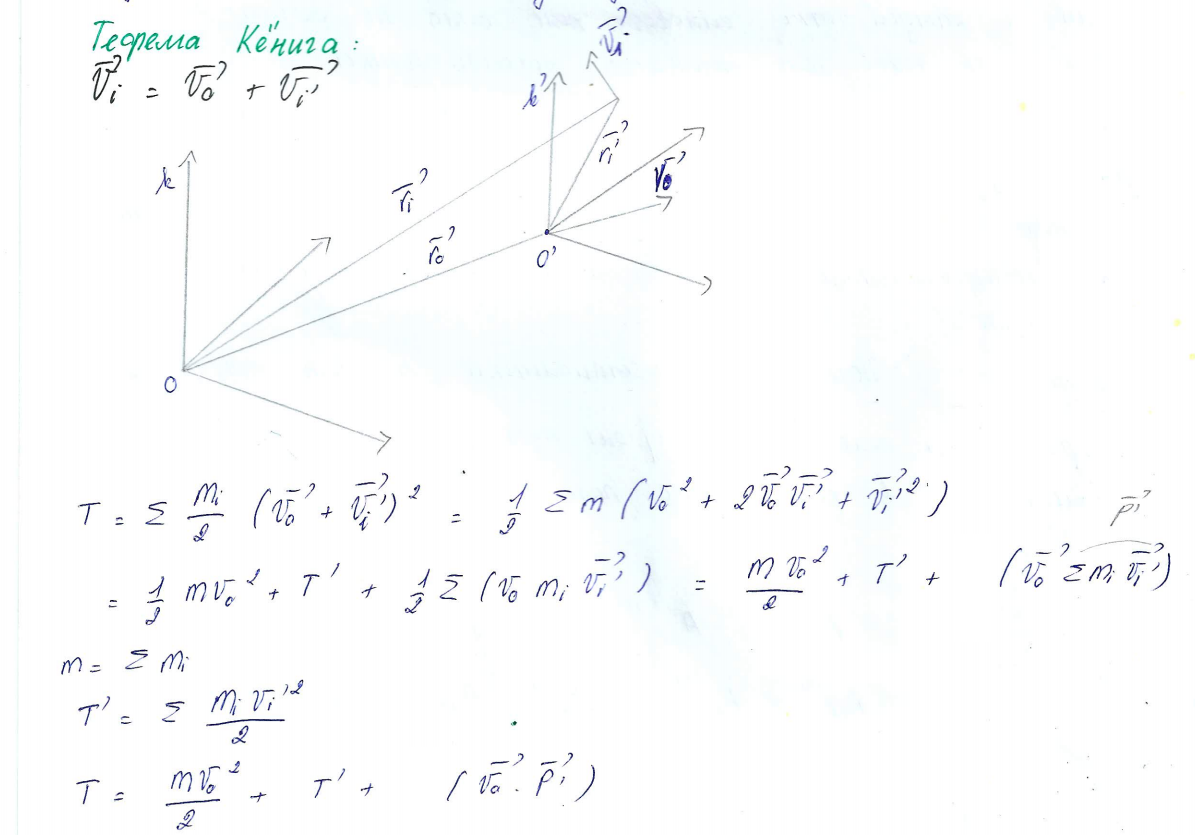 Теорема Кёнига:
v⃗ᵢ = v⃗₀ + v⃗ᵢ'
v⃗ᵢ'
k'
r⃗ᵢ'
k
v⃗₀
r⃗ᵢ
r⃗₀
O'
O
T = Σ mᵢ/2 (v⃗₀ + v⃗ᵢ')² = 1/2 Σ m (v₀² + 2v⃗₀v⃗ᵢ' + v⃗ᵢ'²)
p⃗'
= 1/2 mv₀² + T' + 1/2 Σ (v₀ mᵢ v⃗ᵢ') = mv₀²/2 + T' + (v⃗₀ Σmᵢ v⃗ᵢ')
m = Σ mᵢ
T' = Σ mᵢvᵢ'²/2
T = mv₀²/2 + T' + (v⃗₀ · p⃗')